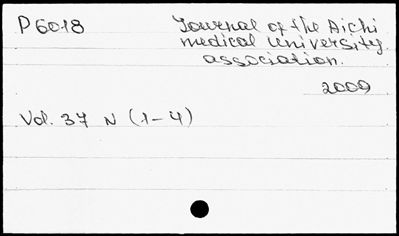 P6018 Journal of the Aichi
medical university
association.
2009
Vol. 37 N (1-4)